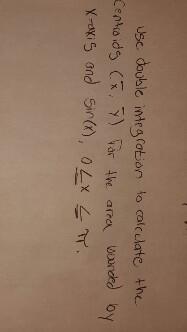 Use double integration to calculate the
Centroids (x̄, ȳ) for the area bounded by
x-axis and sin(x), 0 ≤ x ≤ π.